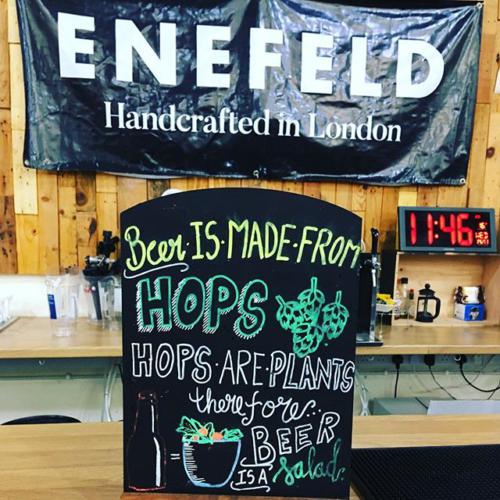 ENEFELD
Handcrafted in London
Beer·IS·MADE·FROM
HOPS
HOPS·ARE·PLANTS
therefore...
BEER
=
IS A salad.
11:46